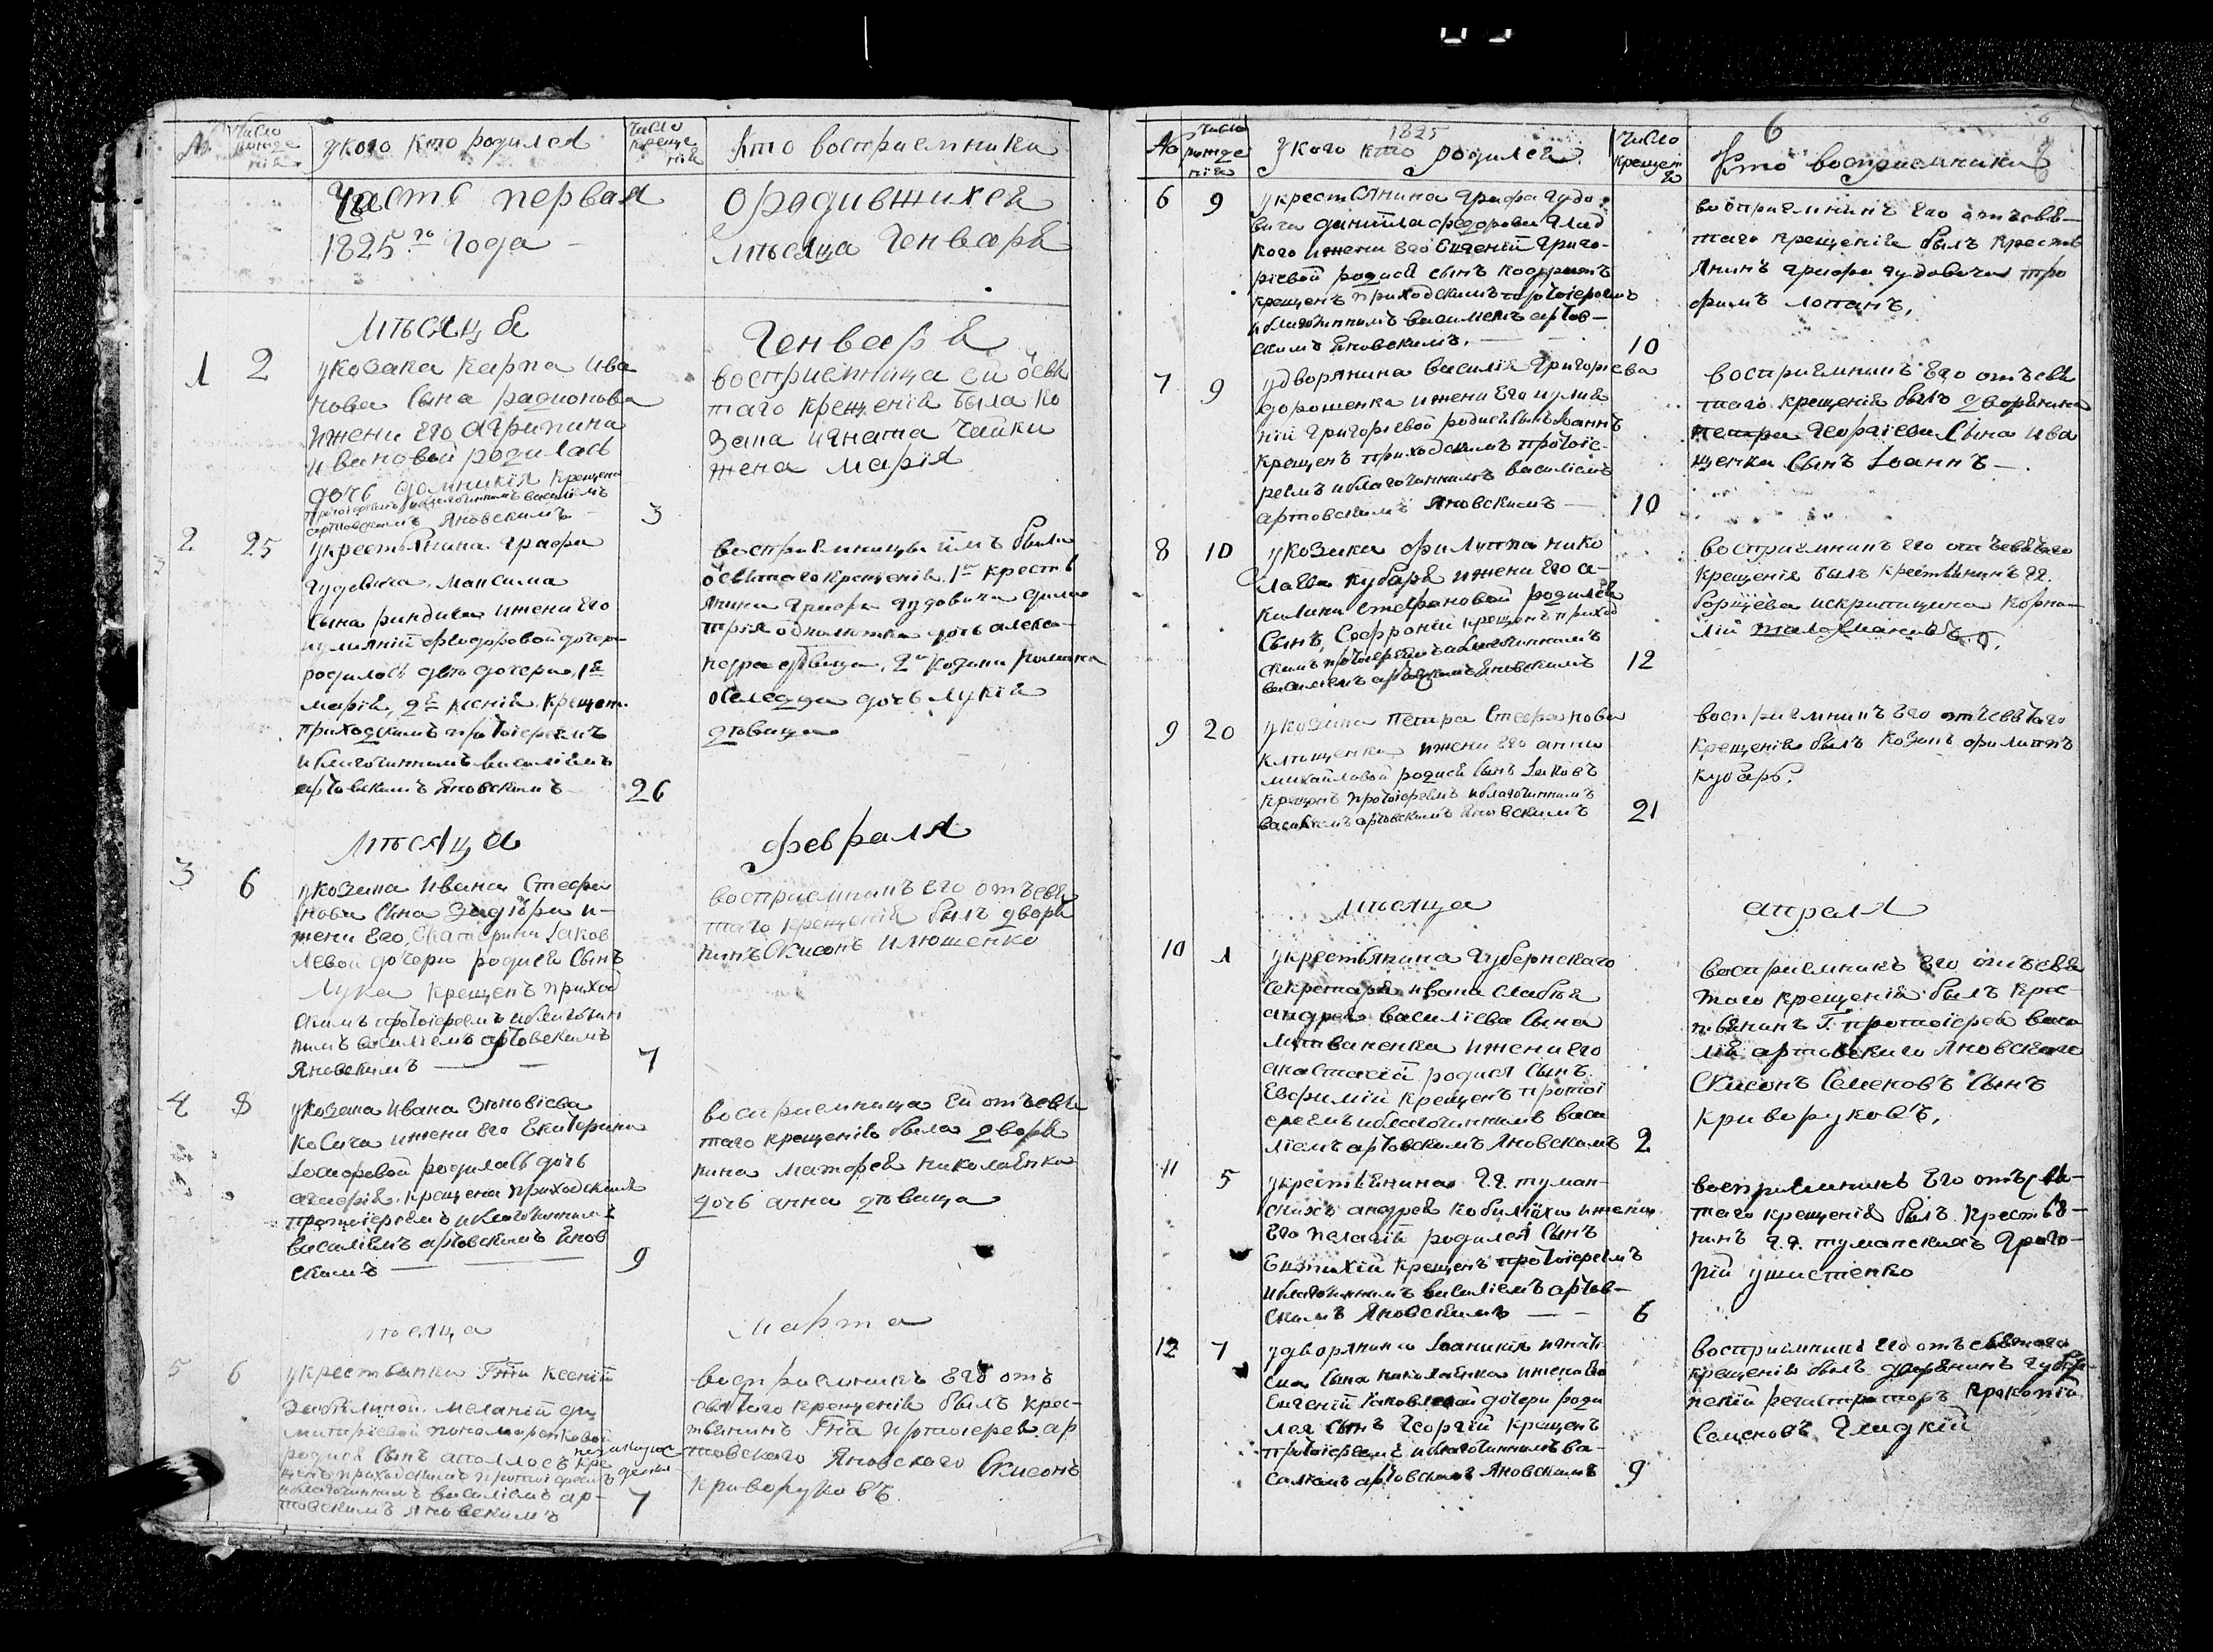 №
число
рожде
нія
у кого кто родился
число
креще
нія
Кто восприемники
Часть первая
о родившихся
1825го года
мѣсяца Генваря
Мѣсяца
Генваря
1
2
у козака карпа ива
нова сына радионова
и жени его агрипина
ивановой родилась
дочь домникія крещена
протоіереемъ и благочиннымъ василіемъ
артовскимъ Яновскимъ
3
восприемница ей о свя
таго крещенія была ко
зака игната чайки
жена марія
2
25
у крестьянина графа
гудовича максима
сына риндича и жени его
иулиянiи феодоровой дочери
родилось двѣ дочери, 1я
марія, 2я ксенія крещен.
приходскимъ протоіереемъ
и благочиннымъ василіемъ
артовскимъ Яновскимъ
26
восприемници имъ были
о святаго крещенія 1й крестья
янина графа гудовича дими
трія дочь алекса-
ндра вдовица, 2й козака
оселедца дочь лукія
вдовица
Мѣсяца
февраля
3
6
у козака ивана стефа
нова сына и
жени его екатерини Iаков
левой дочери родися сынъ
Лука крещенъ приход
скимъ протоіереемъ и благочин
нимъ василіемъ артовскимъ
Яновскимъ
7
восприемникъ его отъ свя
таго крещенія былъ дворя
нинъ Ксисонъ илюшенко
4
8
у козака ивана зѣновіева
и жени его Екатерини
родилась дочь
агафія крещена приходскимъ
протоіереемъ и благочиннымъ
василіемъ артовскимъ Янов
скимъ
9
восприемница ей отъ свя
таго крещенія была дворя
нина матфея николаенка
дочь анна вдовица
мѣсяца
марта
5
6
у крестьянки Гжи ксеніи
меланіи ди
митріевой пономаренковой
родися сынъ аполлосъ кре
щенъ приходскимъ протоіереемъ
и благочиннымъ василіемъ ар-
товскимъ Яновскимъ
7
восприемникъ его отъ
святаго крещенія былъ крес-
тьянинъ Гна протоіерея ар
товскаго Яновскаго Ксисонъ
криворуковъ
№
число
рожде
нія
1825
у кого кто родился
число
крещен
я
6
Кто восприемники
6
9
у крестьянина графа гудо
вича даниила федорова глад
кого и жени его Евгеніи григо-
ріевой родися сынъ кодратъ
крещенъ приходскимъ протоіереемъ
и благочиннымъ василіемъ артов-
скимъ Яновскимъ
10
восприемникъ его отъ свя-
таго крещенія былъ крестья
янинъ графа гудовича тро
фимъ лопанъ,
7
9
у дворянина василія григоріева
дорошенка и жени его иулия
ніи григоріевой родися сынъ Iоаннъ
крещенъ приходскимъ протоіе-
реемъ и благочиннымъ василіемъ
артовскимъ Яновскимъ
10
восприемникъ его отъ свя
таго крещенія былъ дворянина
петра георгіева сына ива
щенка сынъ Iоаннъ
8
10
у козака филиппа нико
лаева кубаря и жени его а-
килини стефановой родился
сынъ, Софроній крещенъ приход
скимъ протоіереемъ и благочиннымъ
василіемъ артовскимъ Яновскимъ
12
восприемникъ его отъ святаго
крещенія былъ крестьянинъ гг.
борщева искрипицина корни-
лій
9
20
у козака петра стефанова
клѣщенка и жени его анни
михайловой родися сынъ Iаковъ
крещенъ протоіереемъ и благочиннымъ
василіемъ артовскимъ Яновскимъ
21
восприемникъ его отъ святаго
крещенія былъ козакъ филиппъ
кубарь.
мѣсяца
апреля
10
1
у крестьянина губернскаго
секретаря ивана слабѣя
андрея василіева сына
литвиненка и жени его
анастасіи родися сынъ
Евфимій крещенъ протоі
ереемъ и благочиннымъ васи
ліемъ артовскимъ Яновскимъ
2
восприемникъ его отъ свя
таго крещенія былъ крес-
тьянинъ Г. протоіерея васи
лія артовскаго Яновскаго
Ксисонъ Семеновъ сынъ
криворуковъ,
11
5
у крестьянина г.г. туман-
скихъ андрея кобиляхи и жени
его пелагіи родился сынъ
Евтихій крещенъ протоіереемъ
и благочиннымъ василіемъ артов-
скимъ Яновскимъ
6
восприемникъ его отъ свя-
таго крещенія былъ крестья-
нинъ г.г. туманскихъ григо-
рій
12
7
у дворянина Iоаникія игнатi
ева сына николаенка и жени его
Евгеніи Iаковлевой дочери роди
лся сынъ георгій крещенъ
протоіереемъ и благочиннымъ ва-
силіемъ артовскимъ Яновскимъ
9
восприемникъ его отъ святаго
крещенія былъ дворянинъ губер
нскій регистраторъ прокопій
Семеновъ Гладкій